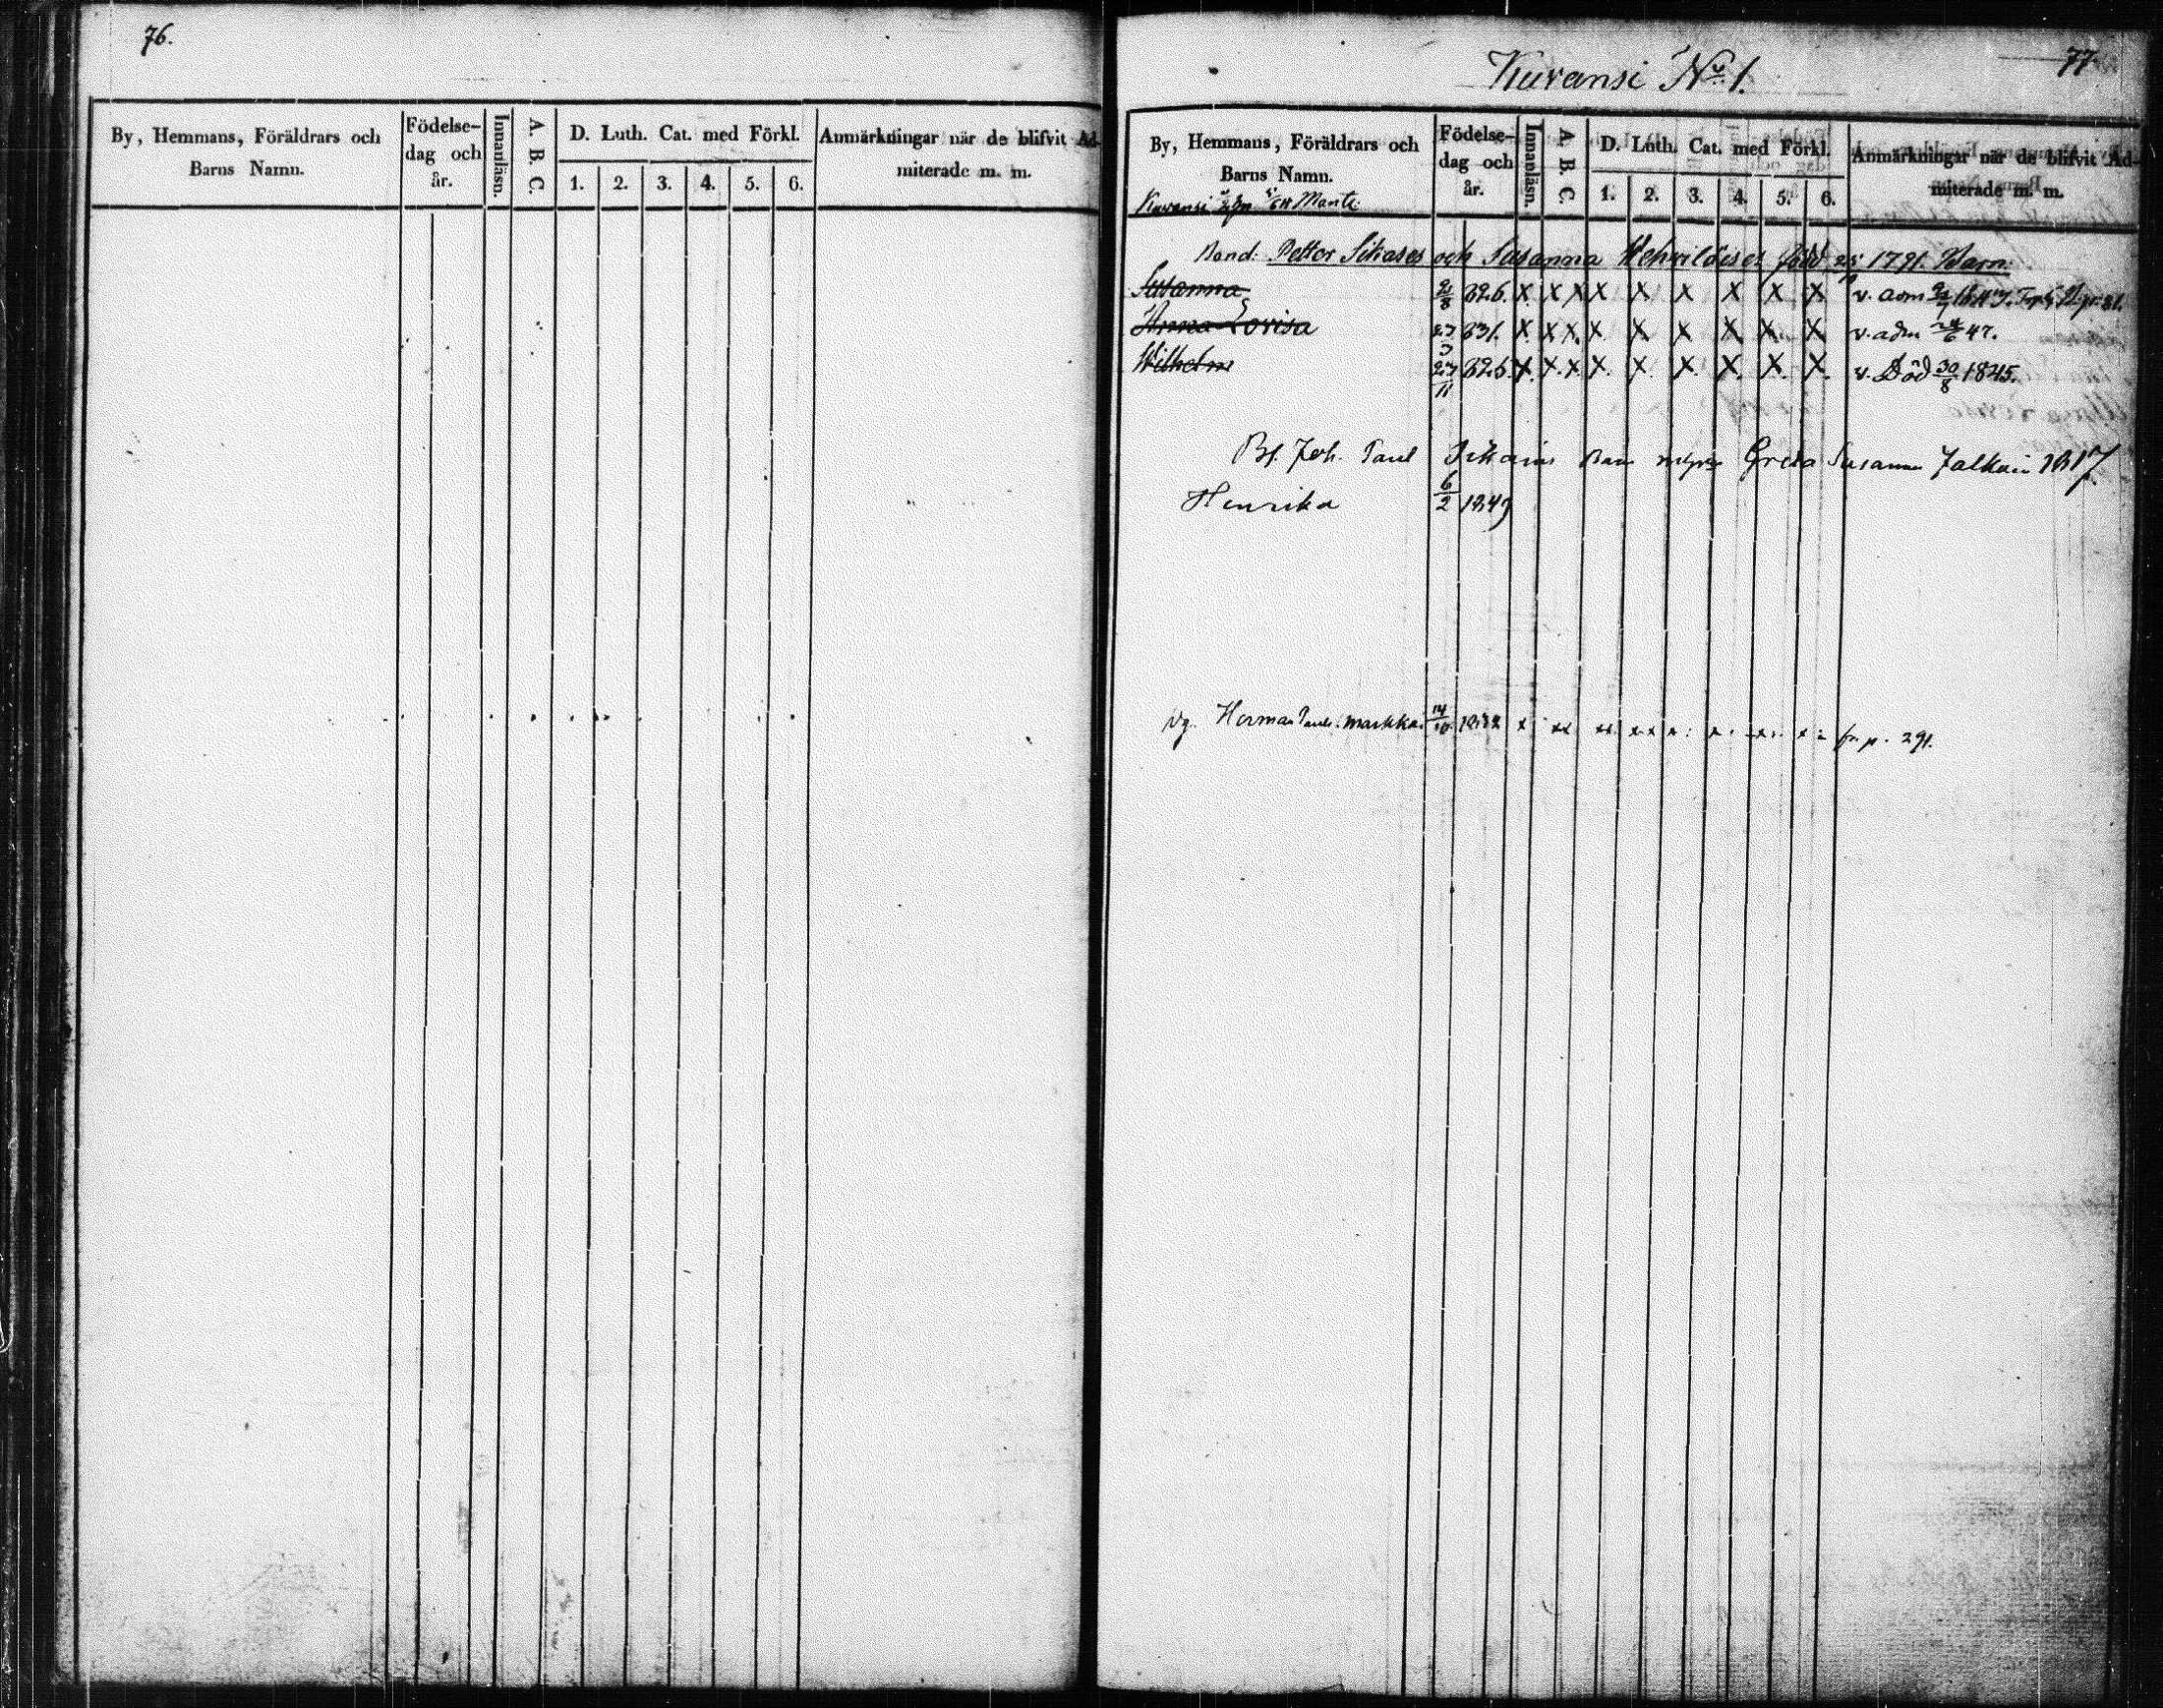 76.
By, Hemmans, Föräldrars och
Barns Namn.
Födelse-
dag och
år.
Innanläsn.
A. B. C.
D. Luth. Cat. med Förkl.
1. 2. 3. 4. 5. 6.
Anmärkningar när de blifvit Ad-
miterade m. m.
77
Kuvansi No 1.
By, Hemmans, Föräldrars och
Barns Namn.
Kuvansi
Födelse-
dag och
år.
Innanläsn.
A. B. C.
D. Luth. Cat. med Förkl.
1. 2. 3. 4. 5. 6.
Anmärkningar när de blifvit Ad-
miterade m. m.
Bond: Petter och Susanna född 1791. Barn:
Susanna 2/8 826. X. X X X X X X X X v. adm
Anna Lovisa 831. X. X X. X. X. X X X X v. adm 24/6 47.
Wilhelm 27/11 826. X. X. X. X. X. X. X. X. X. v. Död 30/8 1845.
Bf. Joh. Paul Greta Susanna 1817
Henrika 6/2 1849
Herman 14/10 fr. p. 291.